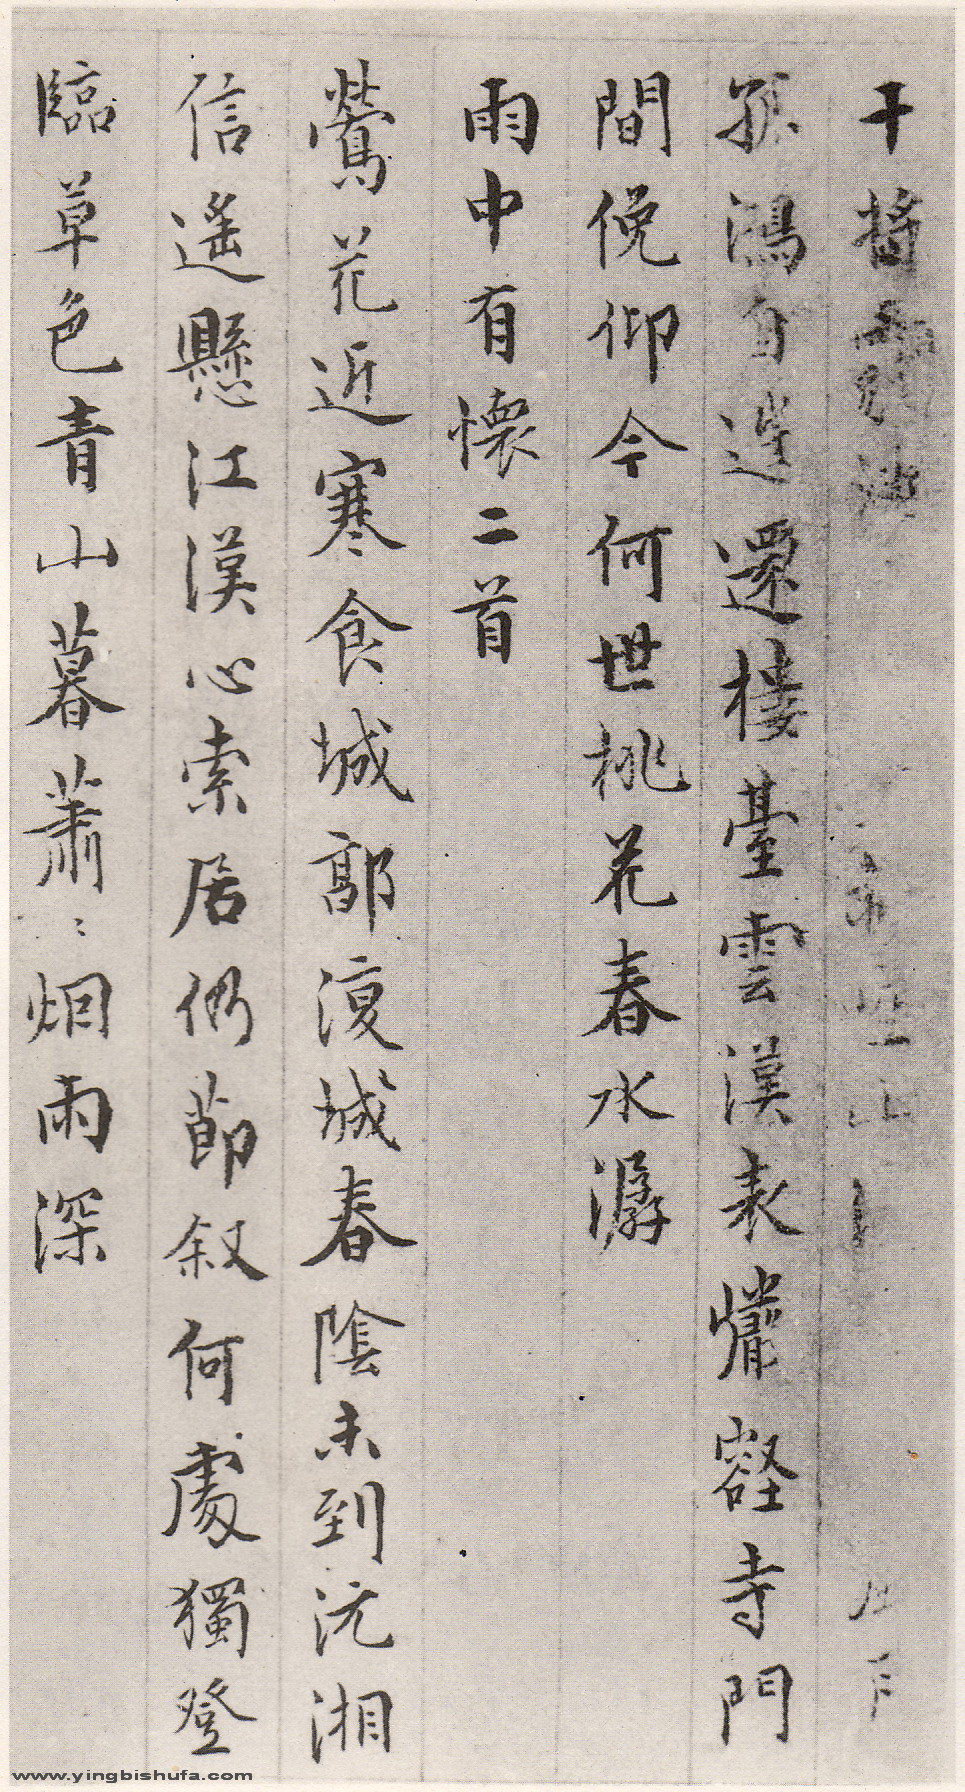 干
孤鴻自還樓臺雲漢表壑寺門
間俛仰今何世桃花春水潺
雨中有懷二首
鶯花近寒食城郭復城春陰未到沅湘
信遙懸江漢心索居仍節叙何處獨登
臨草色青山暮蕭〻烟雨深
www.yingbishufa.com